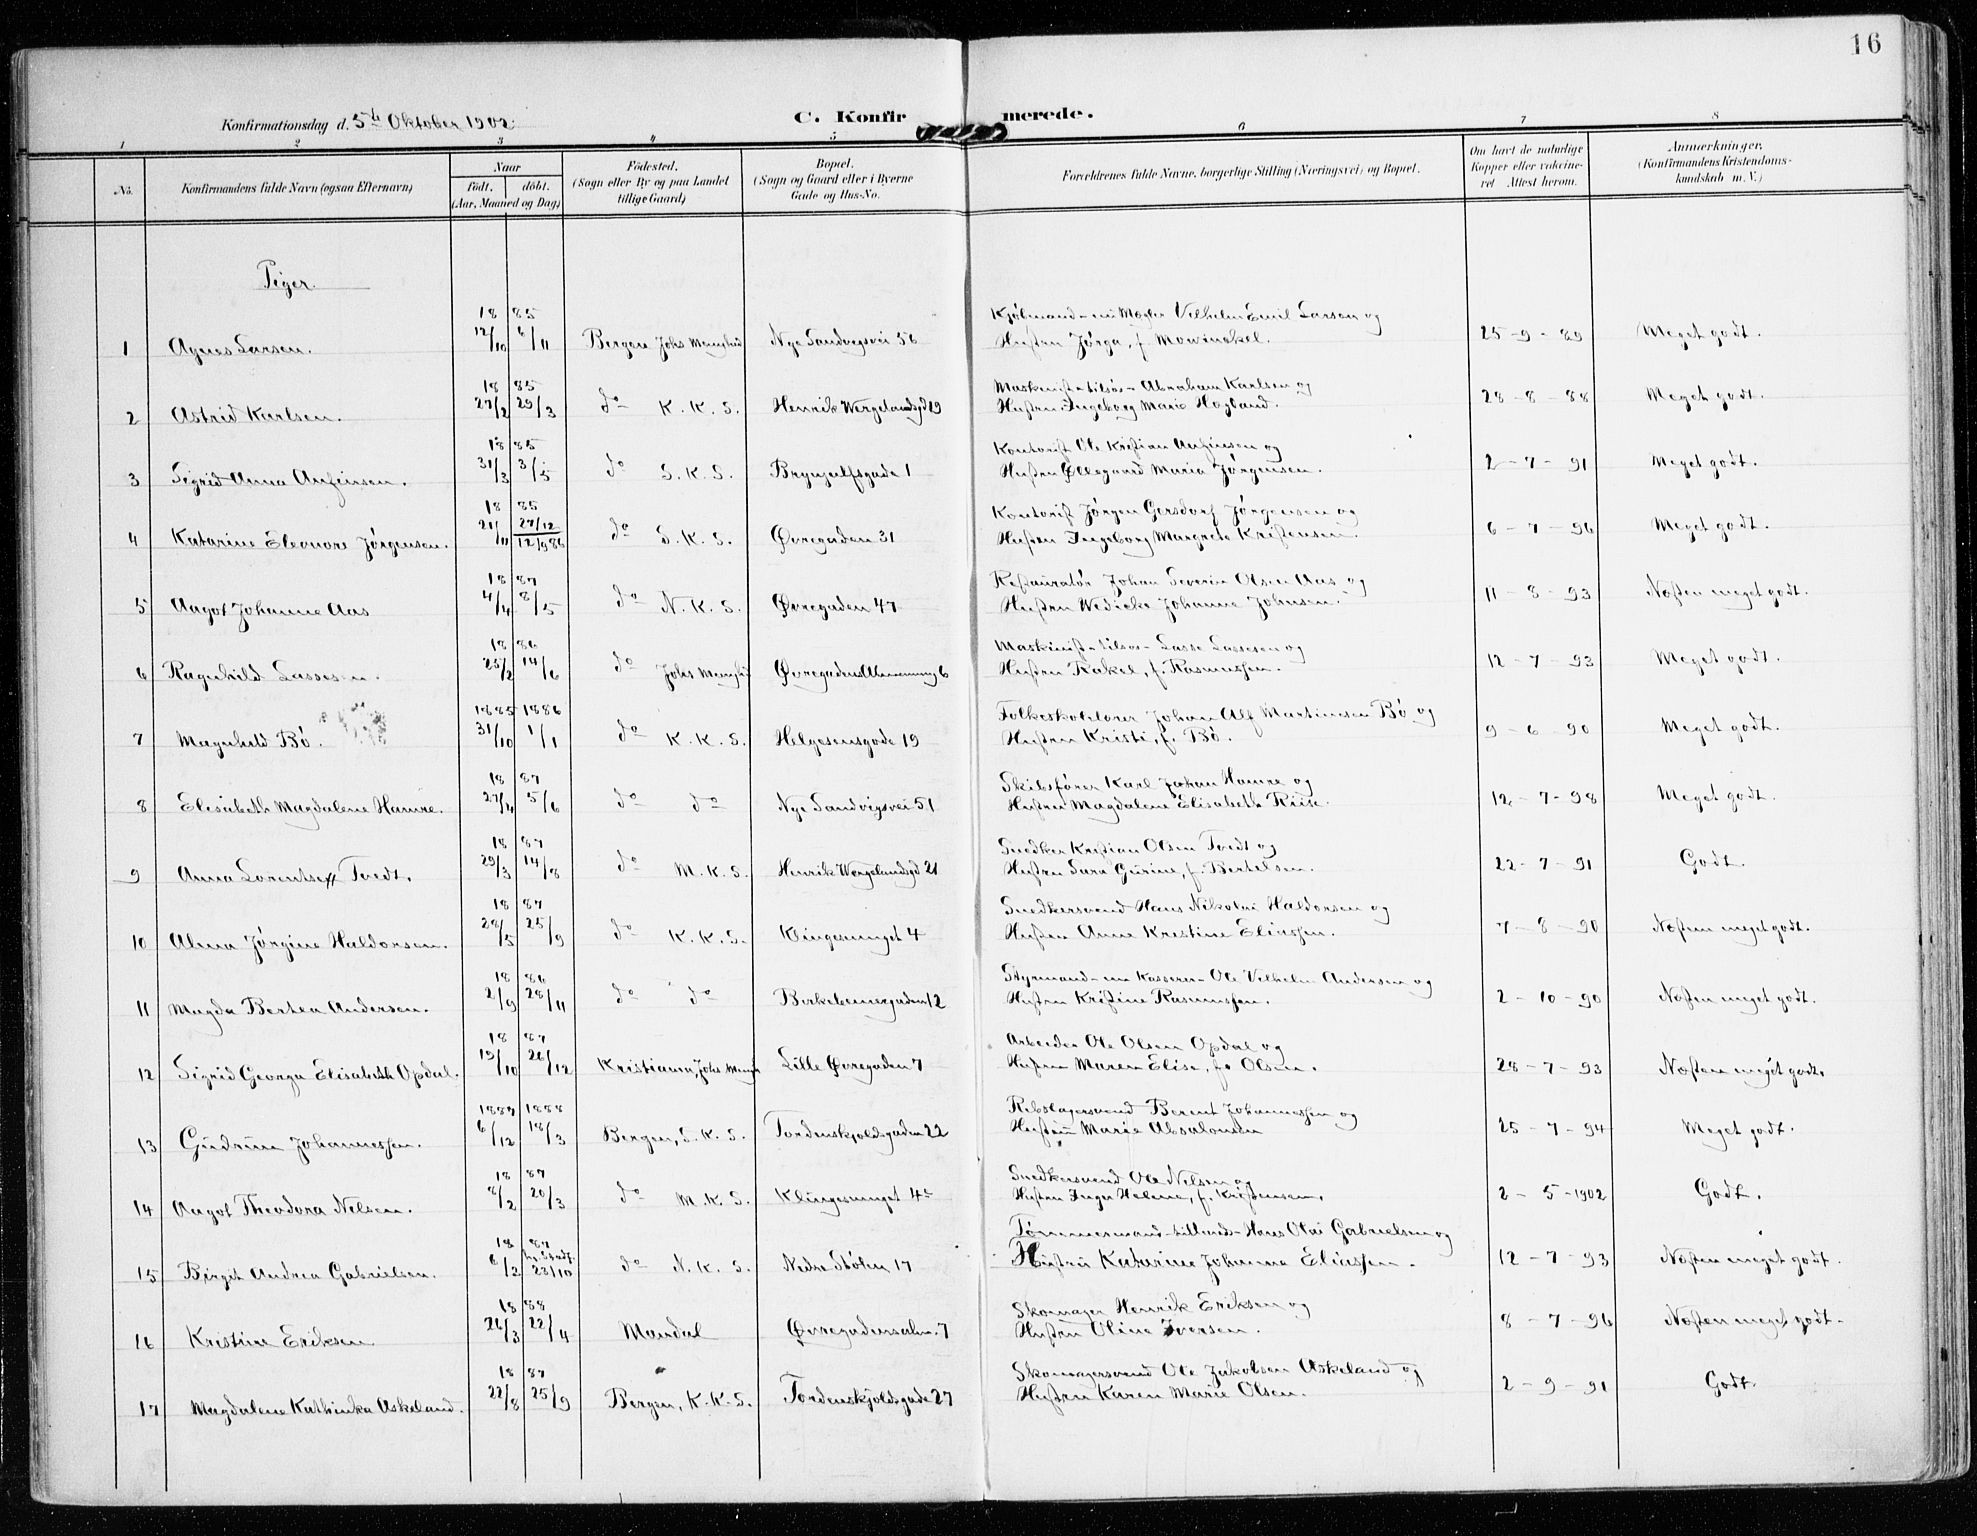 16
Konfirmationsdag d. 5te Oktober 1902.
C. Konfirmerede.
1 2 3 4 5 6 7 8
No. Konfirmandens fulde Navn (ogsaa Efternavn) Naar født. døbt. (Aar, Maaned og Dag) Fødested. (Sogn eller By og paa Landet tillige Gaard) Bopæl. (Sogn og Gaard eller i Byerne Gade og Hus-No. Forældrenes fulde Navne, borgerlige Stilling (Næringsvei) og Bopæl. Om havt de naturlige Kopper eller vakcineret. Attest herom. Anmærkninger. (Konfirmandens Kristendomskundskab m. V.)
Piger.
18 85 Kjøbmand - nu Mægler Vilhelm Emil Larsen og
1 Agnes Larsen. 12/10 6/11 Bergen Johs Menighed Nye Sandvigsvei 56 Hustru Jørga, f. Mowinckel. 25-9-89 Meget godt.
18 85 Maskinist - tilsøs - Abraham Karlsen og
2 Astrid Karlsen. 27/2 29/3 do K. K. S. Henrik Wergelandsgd 19 Hustru Ingeborg Marie Hogland. 28-8-88 Meget godt.
18 85 Kontorist Ole Kristian Anfinsen og
3 Sigrid Anna Anfinsen. 31/3 3/5 do S. K. S. Brynjulfsgade 1 Hustru Øllegaard Maria Jørgensen. 2-7-91 Meget godt.
18 85 Kontorist Jørgen Gersdorf Jørgensen og
4 Katarine Eleonore Jørgensen. 21/11 27/12 12/9 86 do S. K. S. Øvregaden 31 Hustru Ingeborg Margrete Kristensen. 6-7-96 Meget godt.
18 87 Restauratør Johan Severin Olsen Aas og
5 Aagot Johanne Aas 4/4 8/5 do N. K. S. Øvregaden 47 Hustru Wedicke Johanne Johnsen. 11-8-93 Næsten meget godt.
18 86 Maskinist - tilsøs - Lasse Lassesen og
6 Ragnhild Lassesen. 25/2 14/6 do Johs Menighd Øvregadens Almenning 6 Hustru Rakel, f. Rasmussen. 12-7-93 Meget godt.
1885 1886 Folkeskolelærer Johan Alf Martinsen Bø og
7 Magnhild Bø. 31/10 1/1 do K. K. S. Helgesensgade 19 Hustru Kristi, f. Bø. 9-6-90 Meget godt.
18 87 Skibsfører Karl Johan Hamre og
8 Elisabeth Magdalene Hamre. 27/4 5/6 do do Nye Sandvigsvei 51 Hustru Magdalene Elisabeth Riise. 12-7-98 Meget godt.
18 87 Snedker Kristian Olsen Tvedt og
9 Anna Lorentse Tvedt. 29/3 14/8 do M. K. S. Henrik Wergelandsgd 21 Hustru Sara Gurine, f. Bertelsen. 22-7-91 Godt.
18 87 Snedkersvend Hans Nikolai Haldorsen og
10 Alma Jørgine Haldorsen. 28/5 25/9 do K. K. S. Klingesmuget 4 Hustru Anne Kristine Eliassen. 7-8-90 Næsten meget godt.
18 86 Styrmand - nu Kasserer - Ole Vilhelm Andersen og
11 Magda Bertea Andersen. 2/9 28/11 do do Birkebeinergaden 12 Hustru Kristine Rasmussen. 2-10-90 Næsten meget godt.
18 87 Arbeider Ole Olsen Opdal og
12 Sigrid Georga Elisabeth Opdal. 19/10 26/12 Kristiania, Johs Menigh Lille Øvregaden 7 Hustru Maren Elise, f. Olsen. 28-7-93 Næsten meget godt.
1887 1888 Rebslagersvend Berent Johannessen og
13 Gudrun Johannessen. 6/12 18/3 Bergen, S. K. S. Tordenskjoldsgaden 22 Hustru Marie Absalonsen 25-7-94 Meget godt.
18 87 Snedkersvend Ole Nilsen og
14 Aagot Theodora Nilsen. 8/2 20/3 do M. K. S. Klingesmuget 4 Hustru Inger Helene, f. Kristensen. 2-5-1902 Godt.
18 87 Tømmermand - tillands - Hans Olai Gabrielsen og
15 Birgit Andrea Gabrielsen. 6/2 23/10 do N. K. S. Nedre Stølen 17 Hustru Katarine Johanne Eliassen. 12-7-93 Næsten meget godt.
18 88 Skomager Henrik Eriksen og
16 Kristine Eriksen 26/3 22/4 Mandal Øvregadensalm. 7 Hustru Oline Iversen. 8-7-96 Næsten meget godt.
18 87 Skomagersvend Ole Jakobsen Askeland og
17 Magdalene Kathinka Askeland. 22/8 25/9 Bergen, K. K. S. Tordenskjoldsgade 27 Hustru Karen Marie Olsen. 2-9-91 Godt.